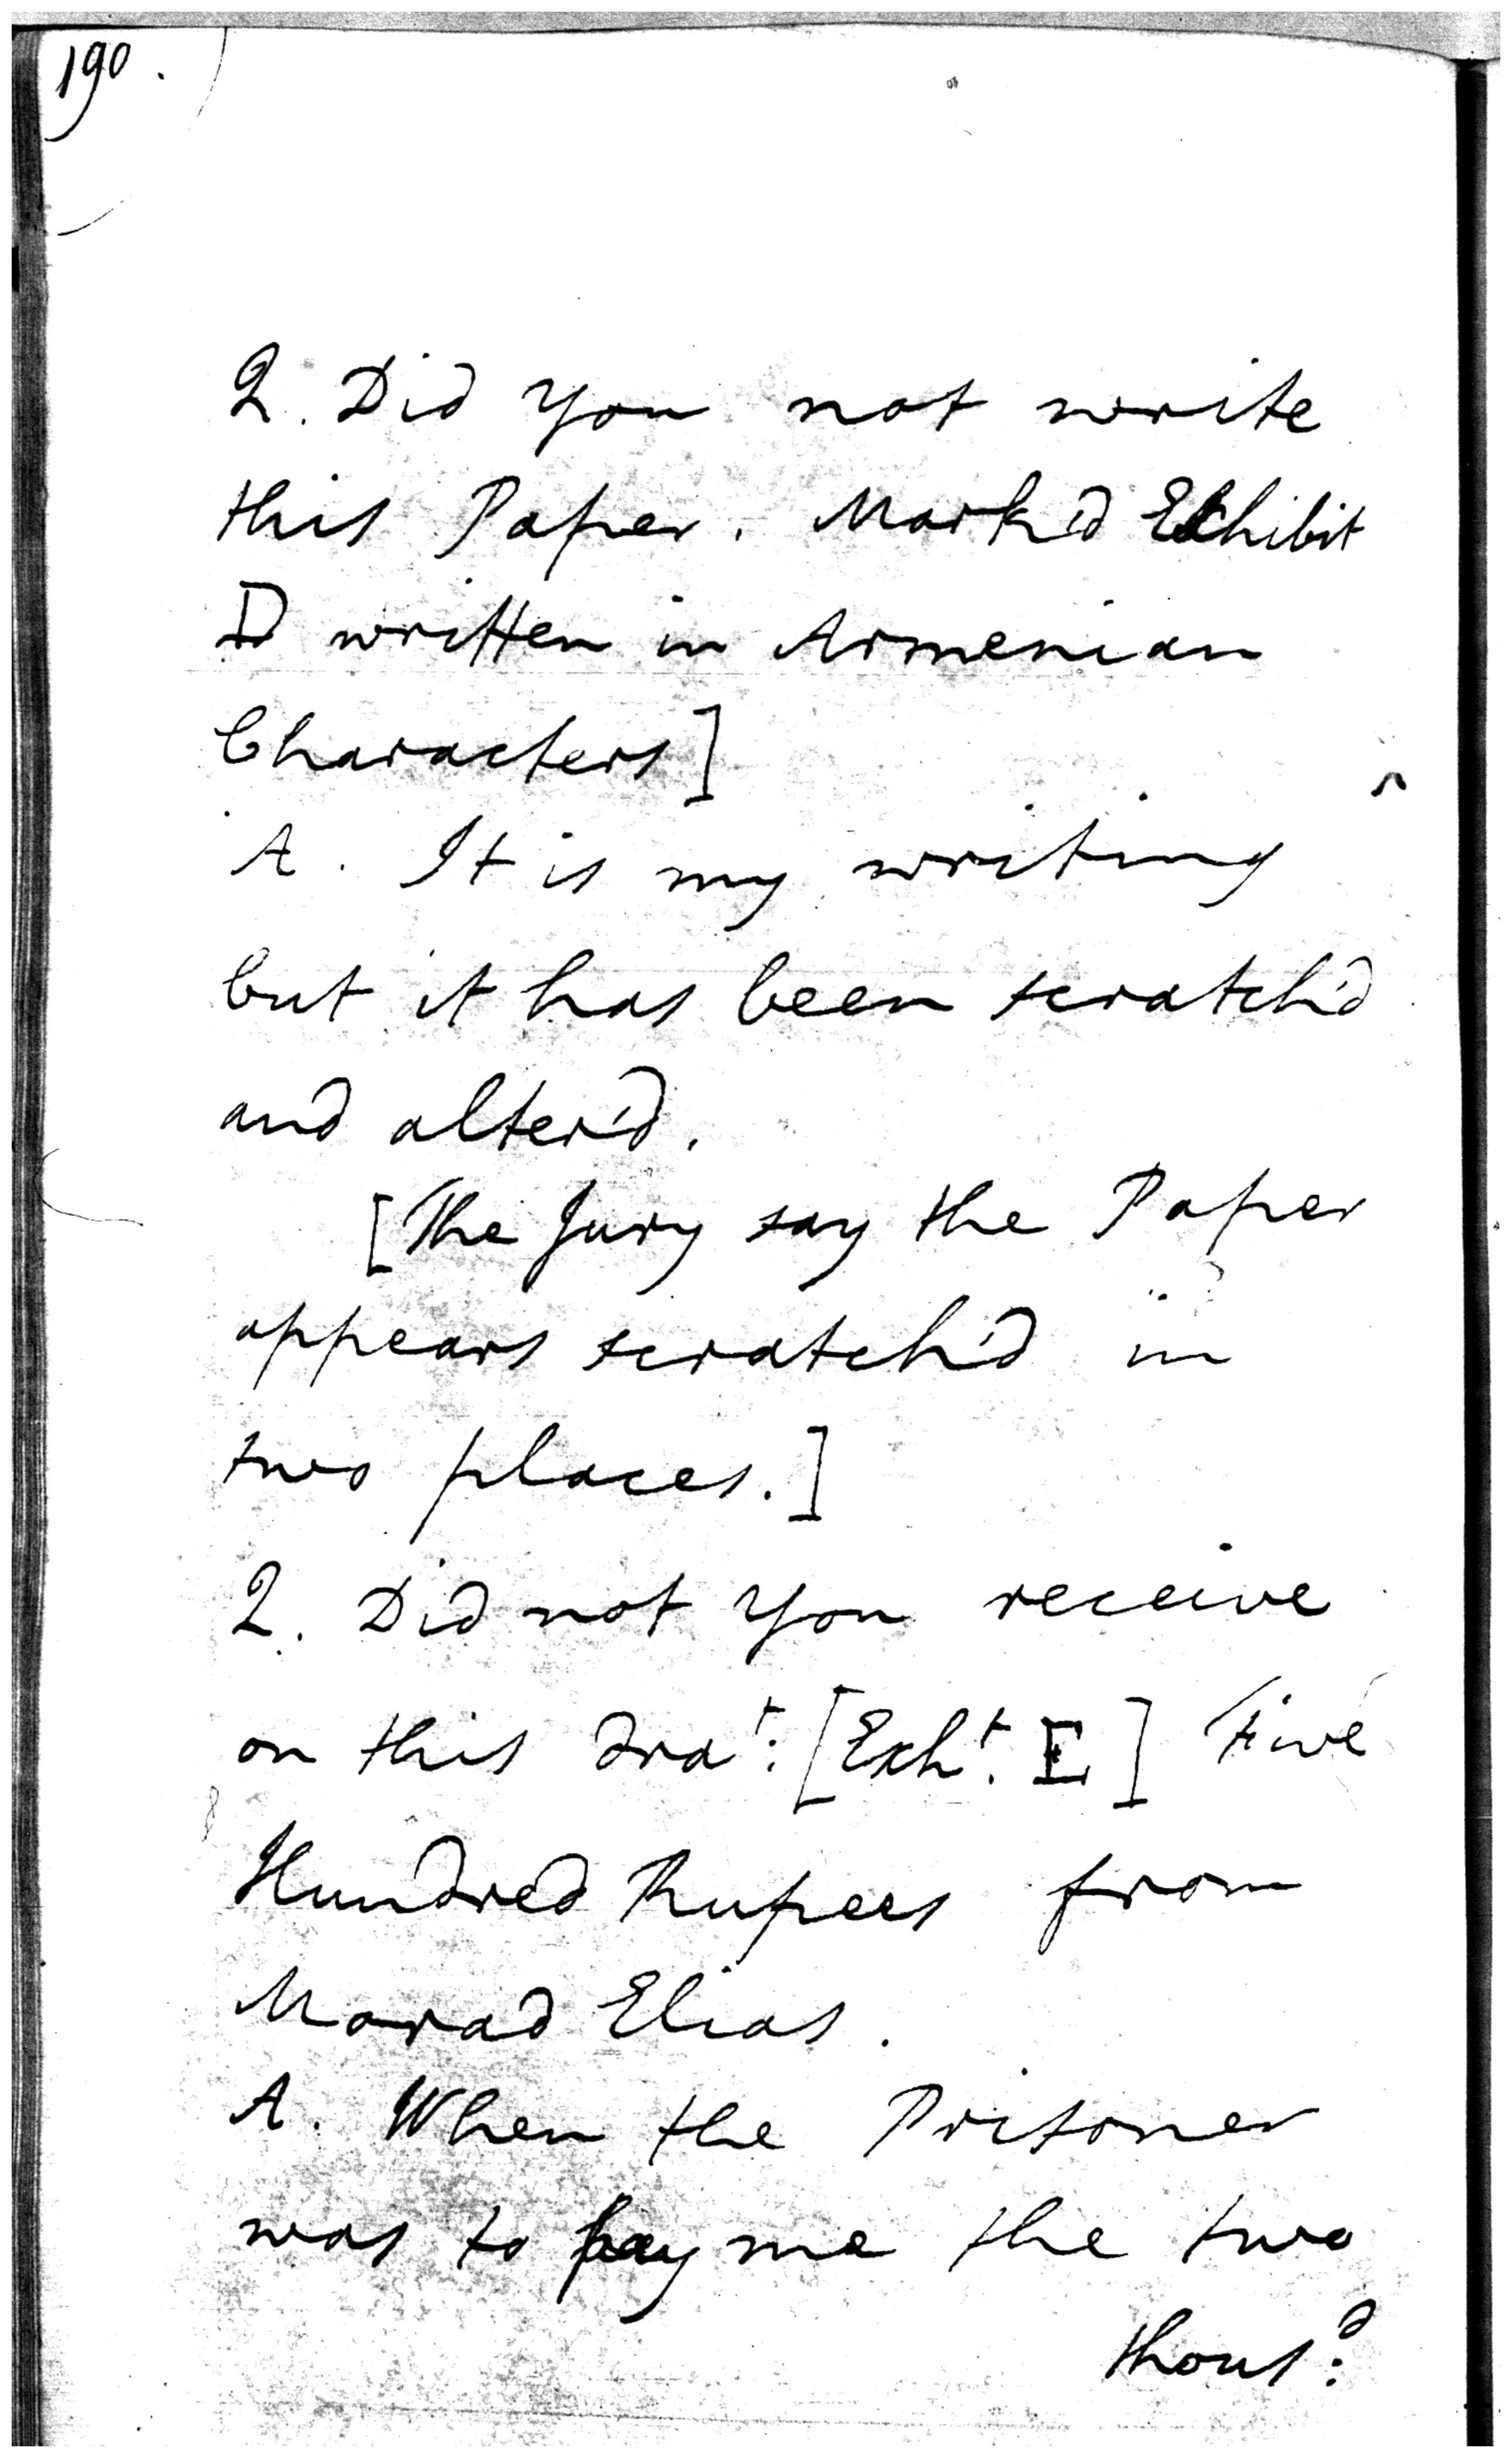 190.
Q. Did you not write
this Paper. Mark'd Exhibit
D written in Armenian
Characters]
A. It is my writing
but it has been scratch'd
and alter'd.
[The Jury say the Paper
appears scratch'd in
two places.]
Q. Did not you receive
on this dra^t: [Exh^t. E] Five
Hundred Rupees from
Marad Elias.
A. When the Prisoner
was to pay me the two
thous^d: